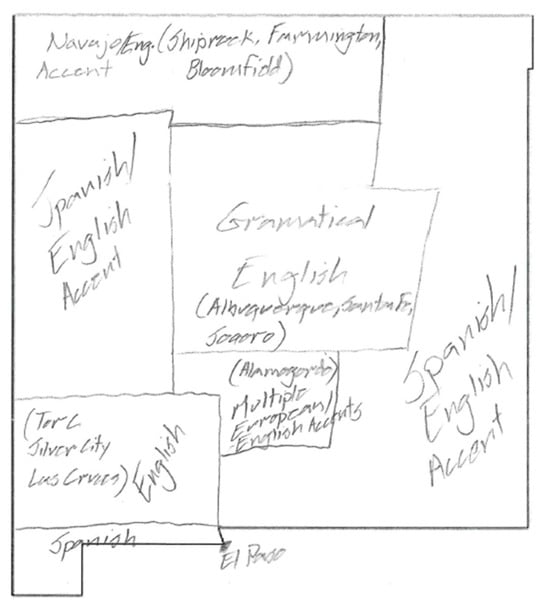 Navajo/Eng. (Shiprock, Farmington,
Accent Bloomfield)
Spanish/
English
Accent
Gramatical
English
(Albuquerque, Santa Fe,
Socoro)
(Alamogordo)
Multiple
European/
English Accents
Spanish/
English
Accent
(T or C
Silver City
Las Cruces)
English
Spanish
El Paso